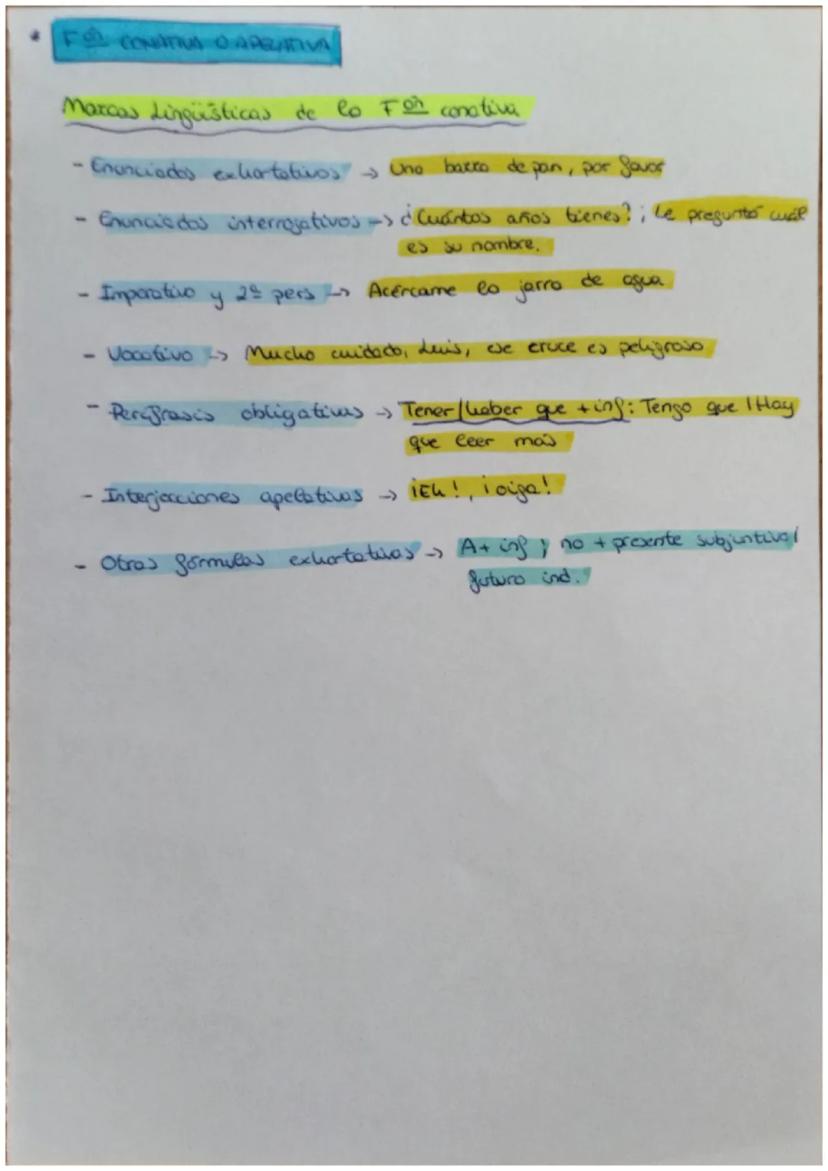 * Fón CONATIVA O APELATIVA
Marcas Lingüísticas de la Fón conativa
- Enunciados exhortativos → Una barra de pan, por favor
- Enunciados interrogativos → ¿Cuántos años tienes?; Le preguntó cuál
es su nombre.
- Imperativo y 2ª pers → Acércame la jarra de agua
- Vocativo → Mucho cuidado, Luis, ese cruce es peligroso
- Perífrasis obligativas → Tener/haber que + inf: Tengo que / Hay
que leer más
- Interjecciones apelativas → ¡Eh!, ¡oiga!
- Otras fórmulas exhortativas → A + inf; no + presente subjuntivo/
futuro ind.